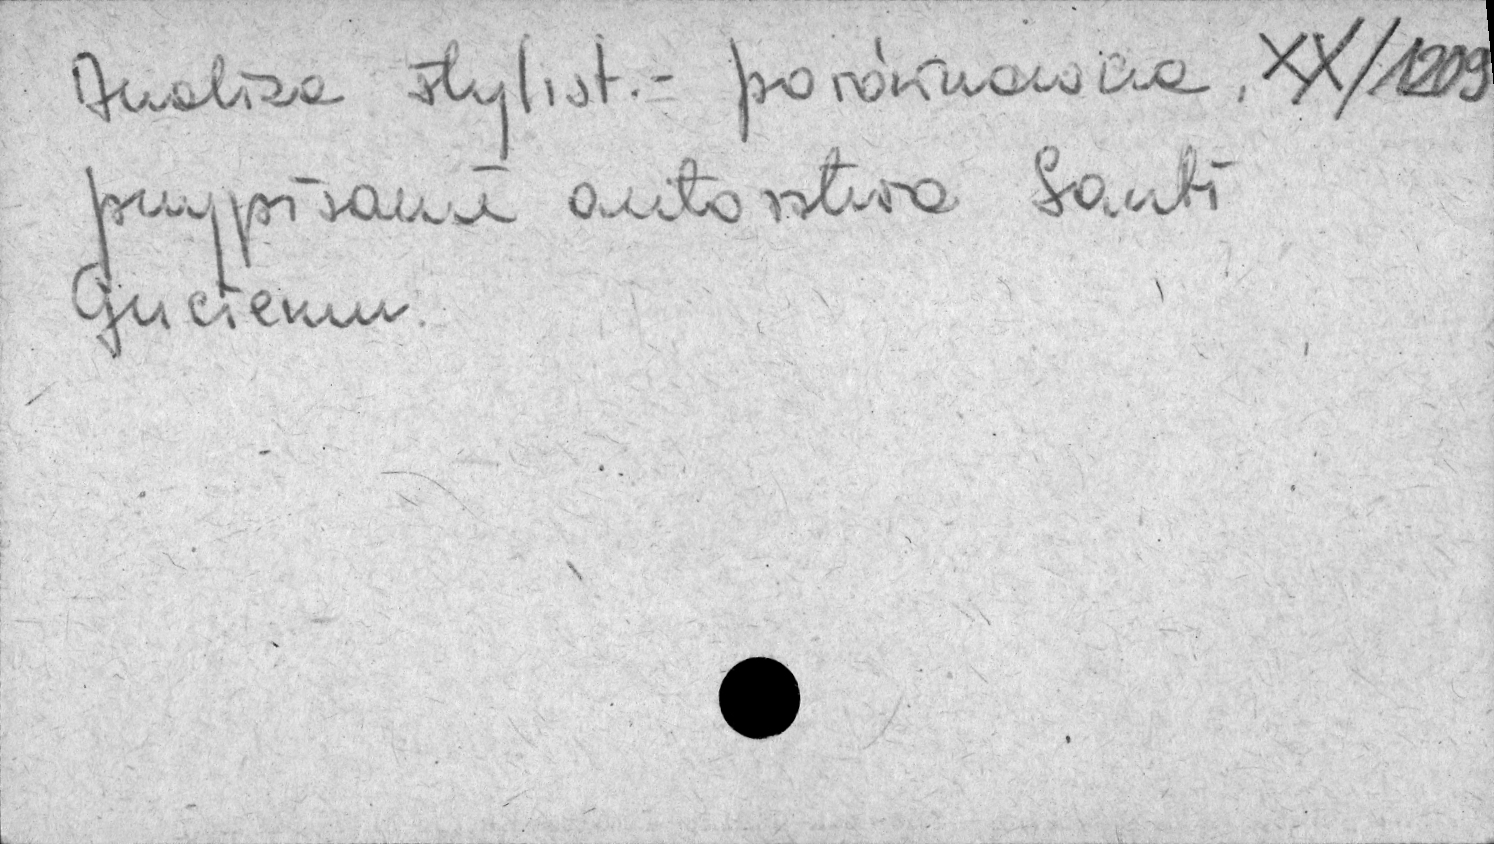 Analiza stylist.- porównawcza, XX/1209
przypisanie autorstwa Santi
Gucciemu.